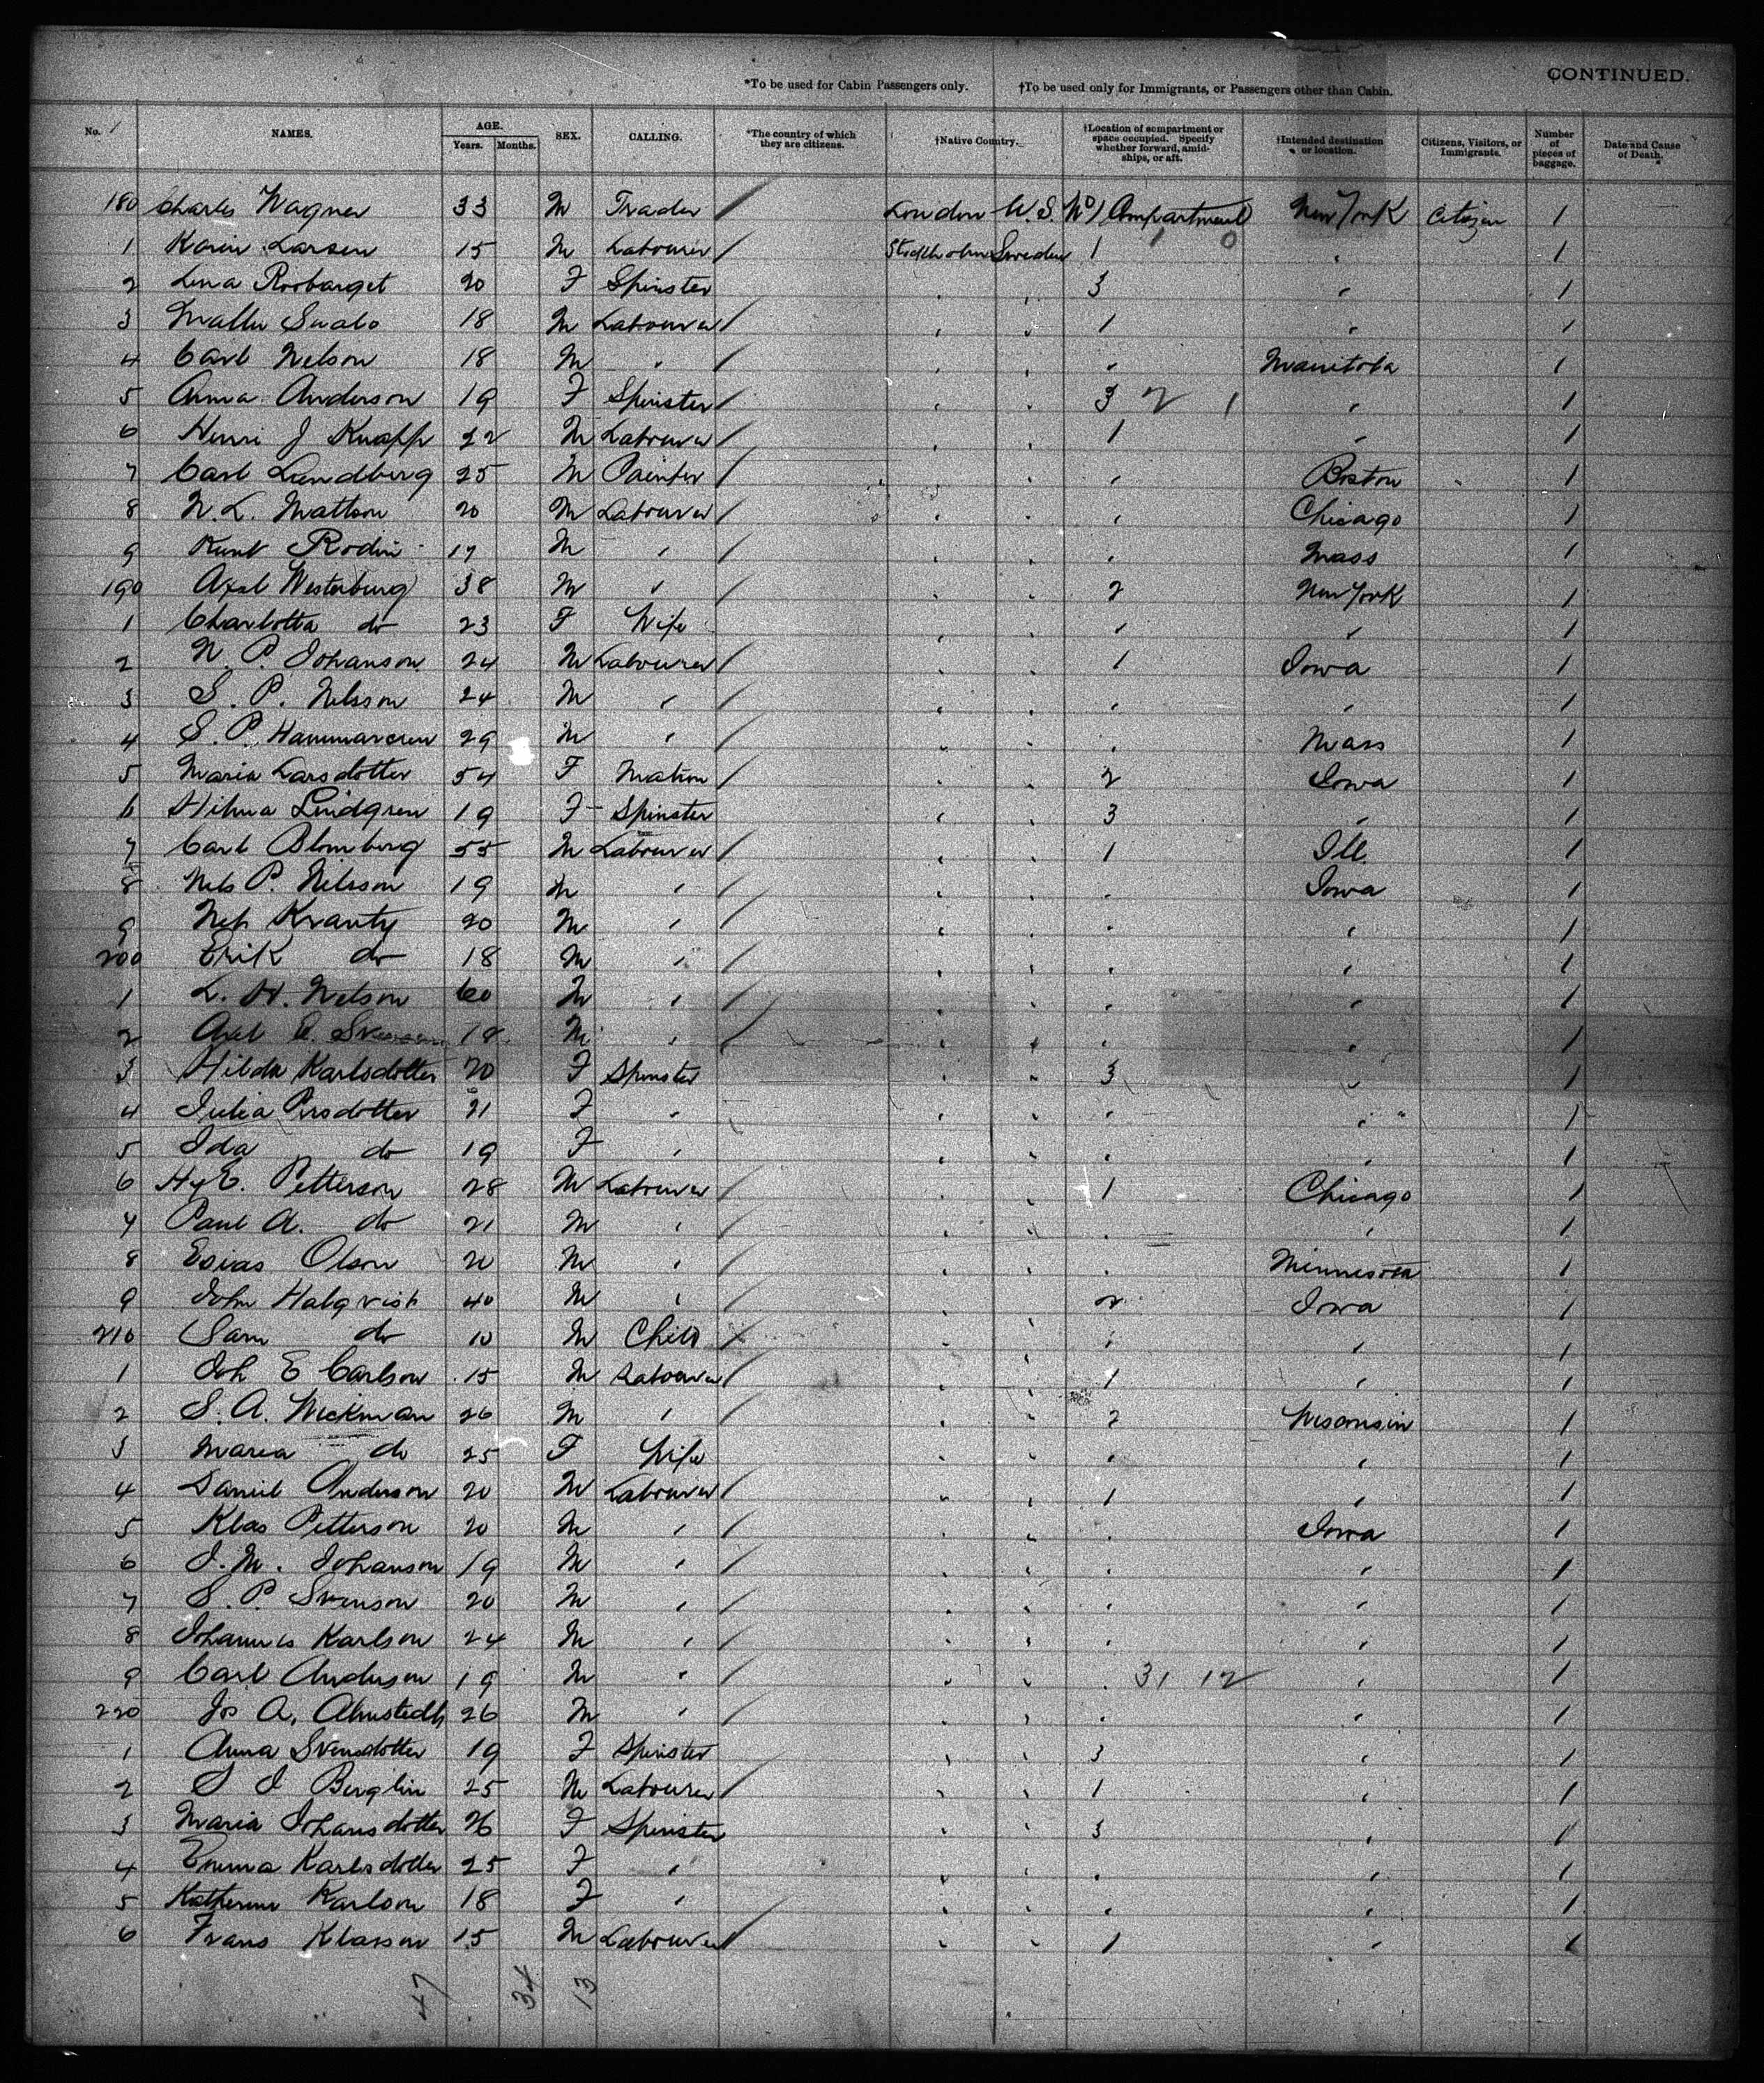 CONTINUED.
*To be used for Cabin Passengers only. †To be used only for Immigrants, or Passengers other than Cabin.
No. NAMES. AGE. Years. Months. SEX. CALLING. *The country of which they are citizens. †Native Country. †Location of compartment or space occupied. Specify whether forward, amidships, or aft. †Intended destination or location. Citizens, Visitors, or Immigrants. Number of pieces of baggage. Date and Cause of Death.
180 Charles Wagner 33 M Trader / London U.S. No 1 Compartment New York Citizen 1
1 Karin Larsen 15 M Labourer / Stockholm Sweden 1 1 0 " 1
2 Lena 20 F Spinster " " 3 " 1
3 18 M Labourer / " " 1 " 1
4 Carl Nelson 18 M " / " " " Manitoba 1
5 Anna Anderson 19 F Spinster / " " 3 2 1 " 1
6 Henri J Knapp 22 M Labourer / " " 1 " 1
7 Carl Lundberg 25 M Painter / " " " Boston 1
8 N. L. Mattson 20 M Labourer / " " " Chicago 1
9 Kunt Rodin 17 M " / " " " Mass 1
190 Axel Westerburg 38 M " / " " 2 New York 1
1 Charlotta do 23 F Wife " " " " 1
2 N. P. Johanson 24 M Labourer / " " 1 Iowa 1
3 S. P. Nelsson 24 M " / " " " " 1
4 S. P. Hammarcren 29 M " / " " " Mass 1
5 Maria Larsdotter 54 F Matron / " " 2 Iowa 1
6 Hilma Lindgren 19 F Spinster " " 3 " 1
7 Carl Blomberg 55 M Labourer / " " 1 Ill 1
8 Nels P. Nilsson 19 M " / " " " Iowa 1
9 Nels Krantz 20 M " / " " " " 1
200 Erik do 18 M " / " " " " 1
1 L. N. Nelson 60 M " / " " " " 1
2 Axel E. 18 M " / " " " " 1
3 Hilda Karlsdotter 20 F Spinster " " 3 " 1
4 Julia Persdotter 21 F " " " " " 1
5 Ida do 19 F " " " " " 1
6 Hy E. Petterson 28 M Labourer / " " 1 Chicago 1
7 Paul A. do 21 M " / " " " " 1
8 Esias Olson 20 M " / " " " Minnesota 1
9 John Halqvist 40 M " / " " 2 Iowa 1
210 Sam do 10 M Child X " " " " 1
1 Joh E Carlson 15 M Labourer / " " 1 " 1
2 S. A. Wickman 26 M " / " " 2 Wisconsin 1
3 Maria do 25 F Wife " " " " 1
4 Daniel Anderson 20 M Labourer / " " 1 " 1
5 Klas Petterson 20 M " / " " " Iowa 1
6 J. M. Johanson 19 M " / " " " " 1
7 S. P. Svenson 20 M " / " " " " 1
8 Johannes Karlson 24 M " / " " " " 1
9 Carl Anderson 19 M " / " " " 31 12 " 1
220 Jos A. Almstedth 26 M " / " " " " 1
1 Anna Svensdotter 19 F Spinster " " 3 " 1
2 S J Berglin 25 M Labourer / " " 1 " 1
3 Maria Johansdotter 26 F Spinster " " 3 " 1
4 Emma Karlsdotter 25 F " " " " " 1
5 Katherine Karlson 18 F " " " " " 1
6 Frans Klasson 15 M Labourer / " " 1 " 1
47 34 13